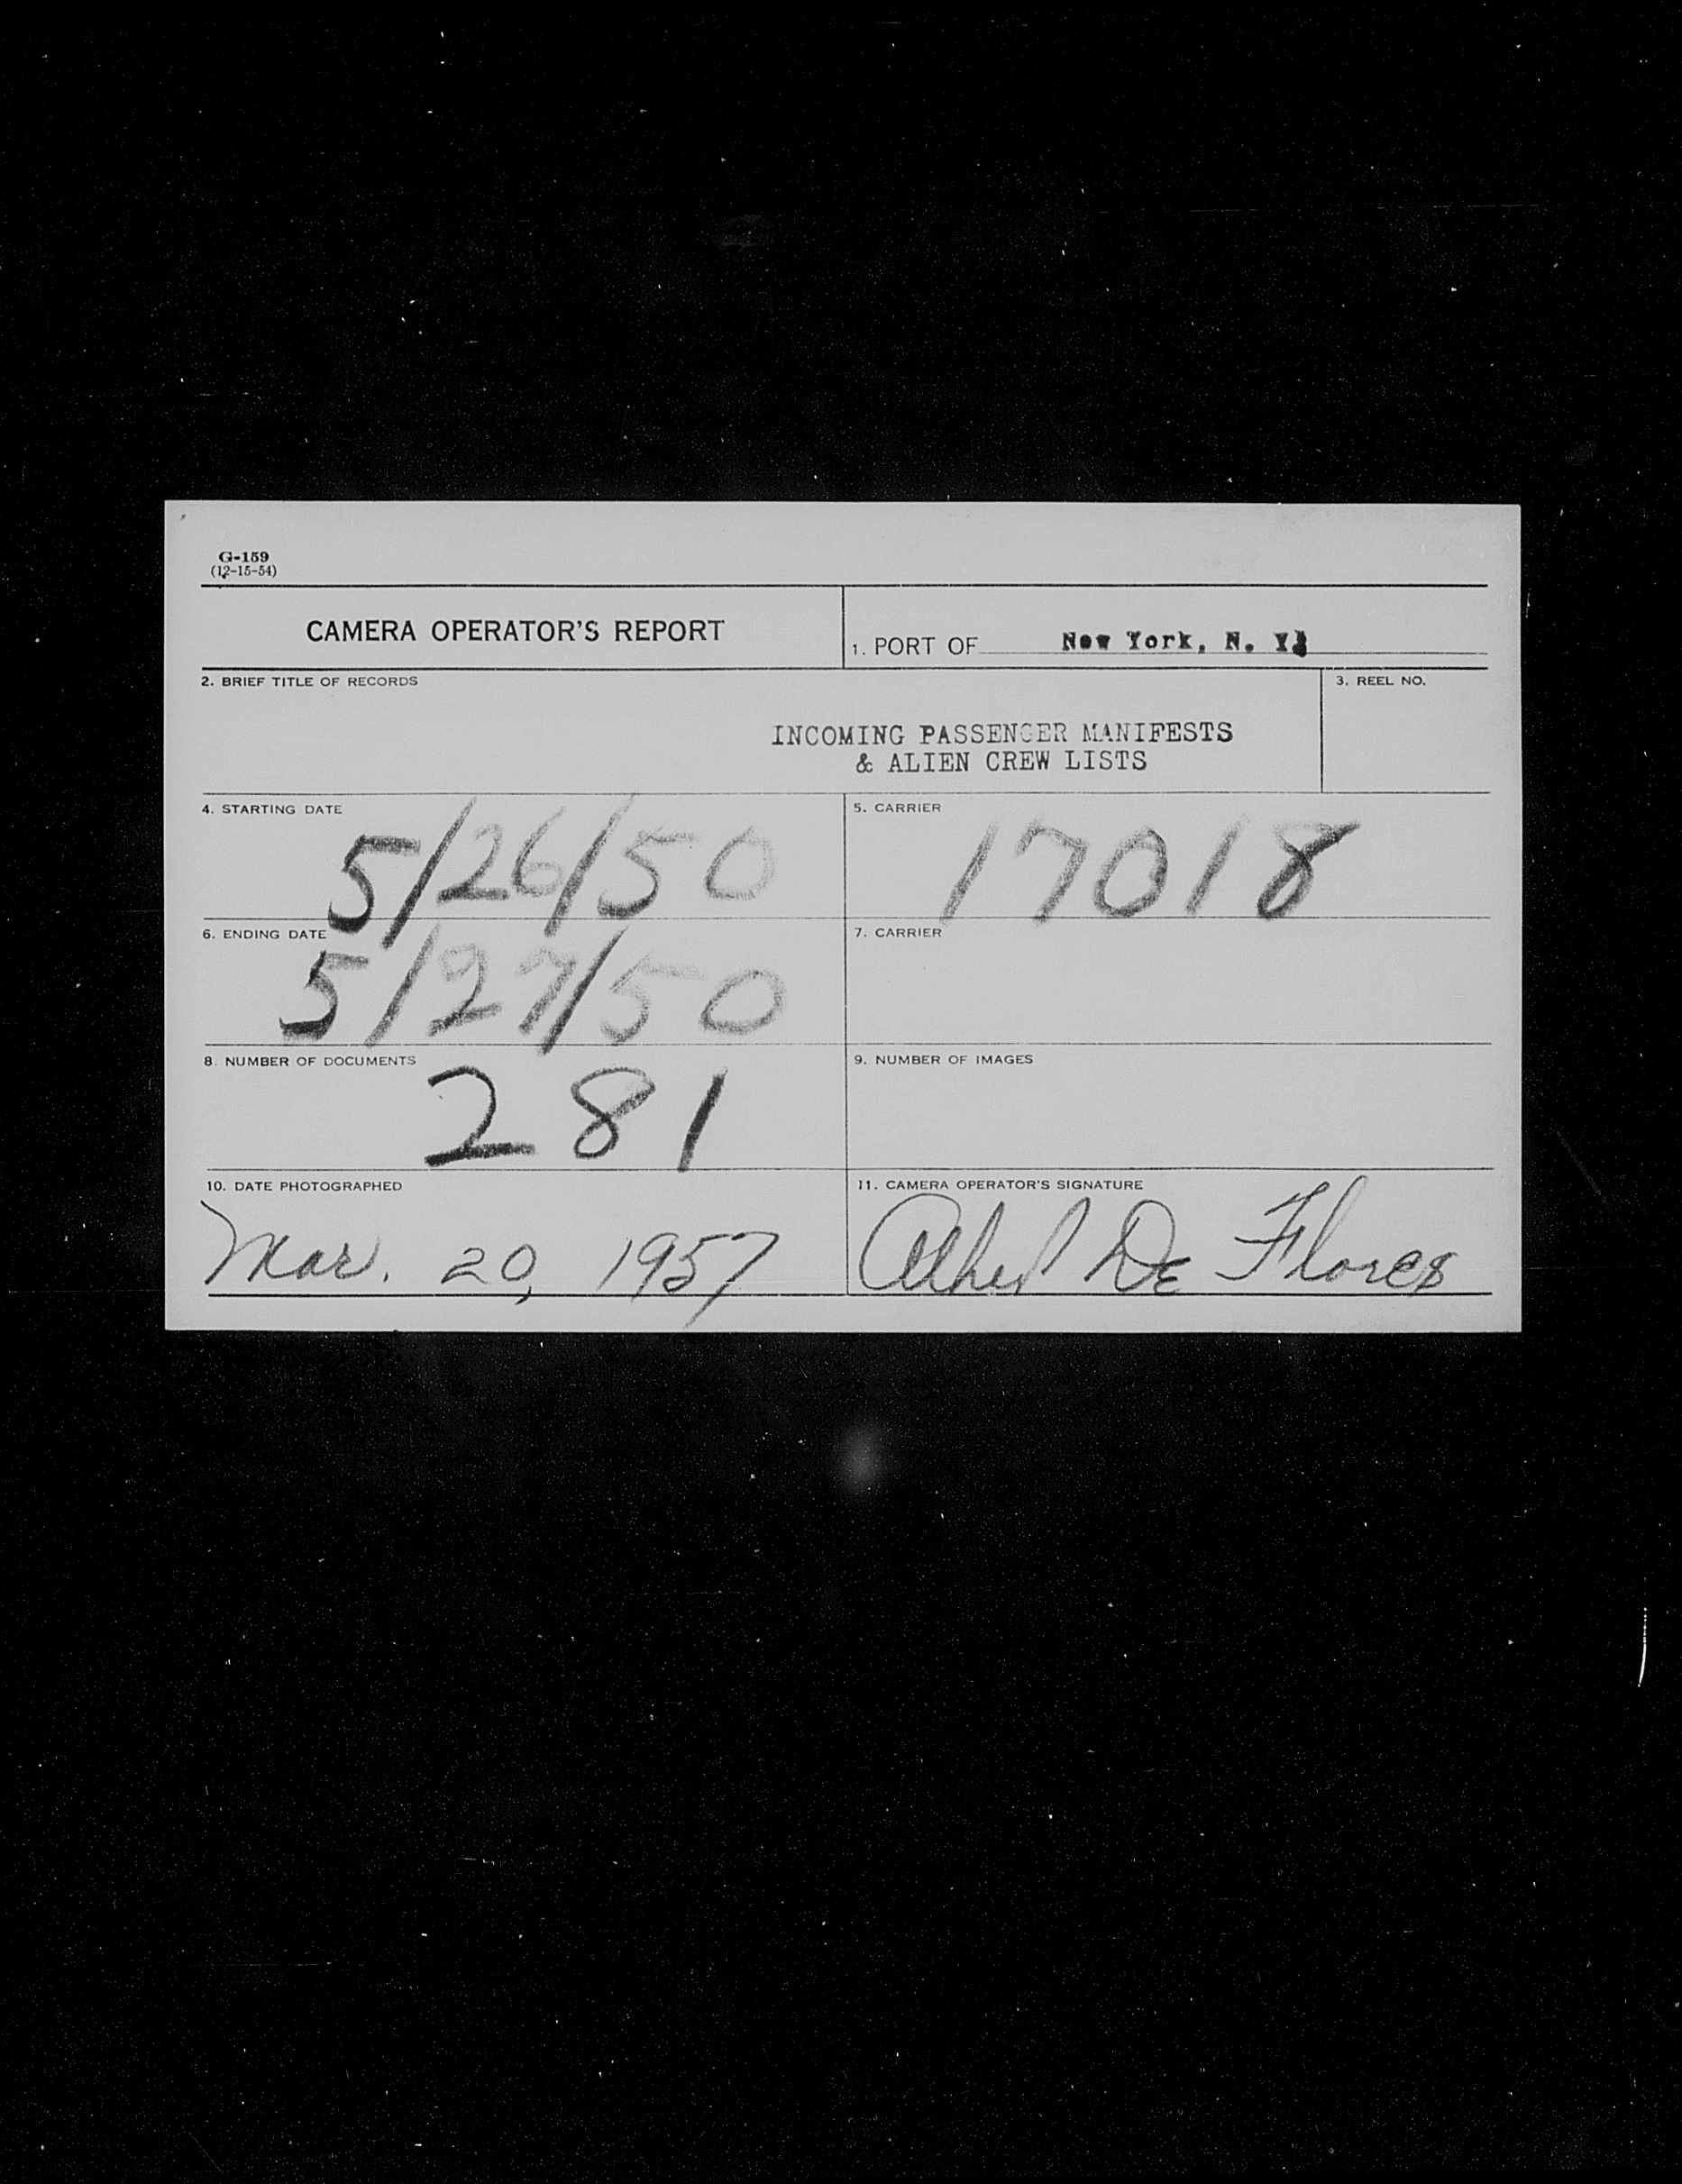 G-159
(12-15-54)
CAMERA OPERATOR'S REPORT
1. PORT OF New York, N. Y.
2. BRIEF TITLE OF RECORDS
3. REEL NO.
INCOMING PASSENGER MANIFESTS
& ALIEN CREW LISTS
4. STARTING DATE
5/26/50
5. CARRIER
17018
6. ENDING DATE
5/27/50
7. CARRIER
8. NUMBER OF DOCUMENTS
281
9. NUMBER OF IMAGES
10. DATE PHOTOGRAPHED
Mar. 20, 1957
11. CAMERA OPERATOR'S SIGNATURE
De Flores